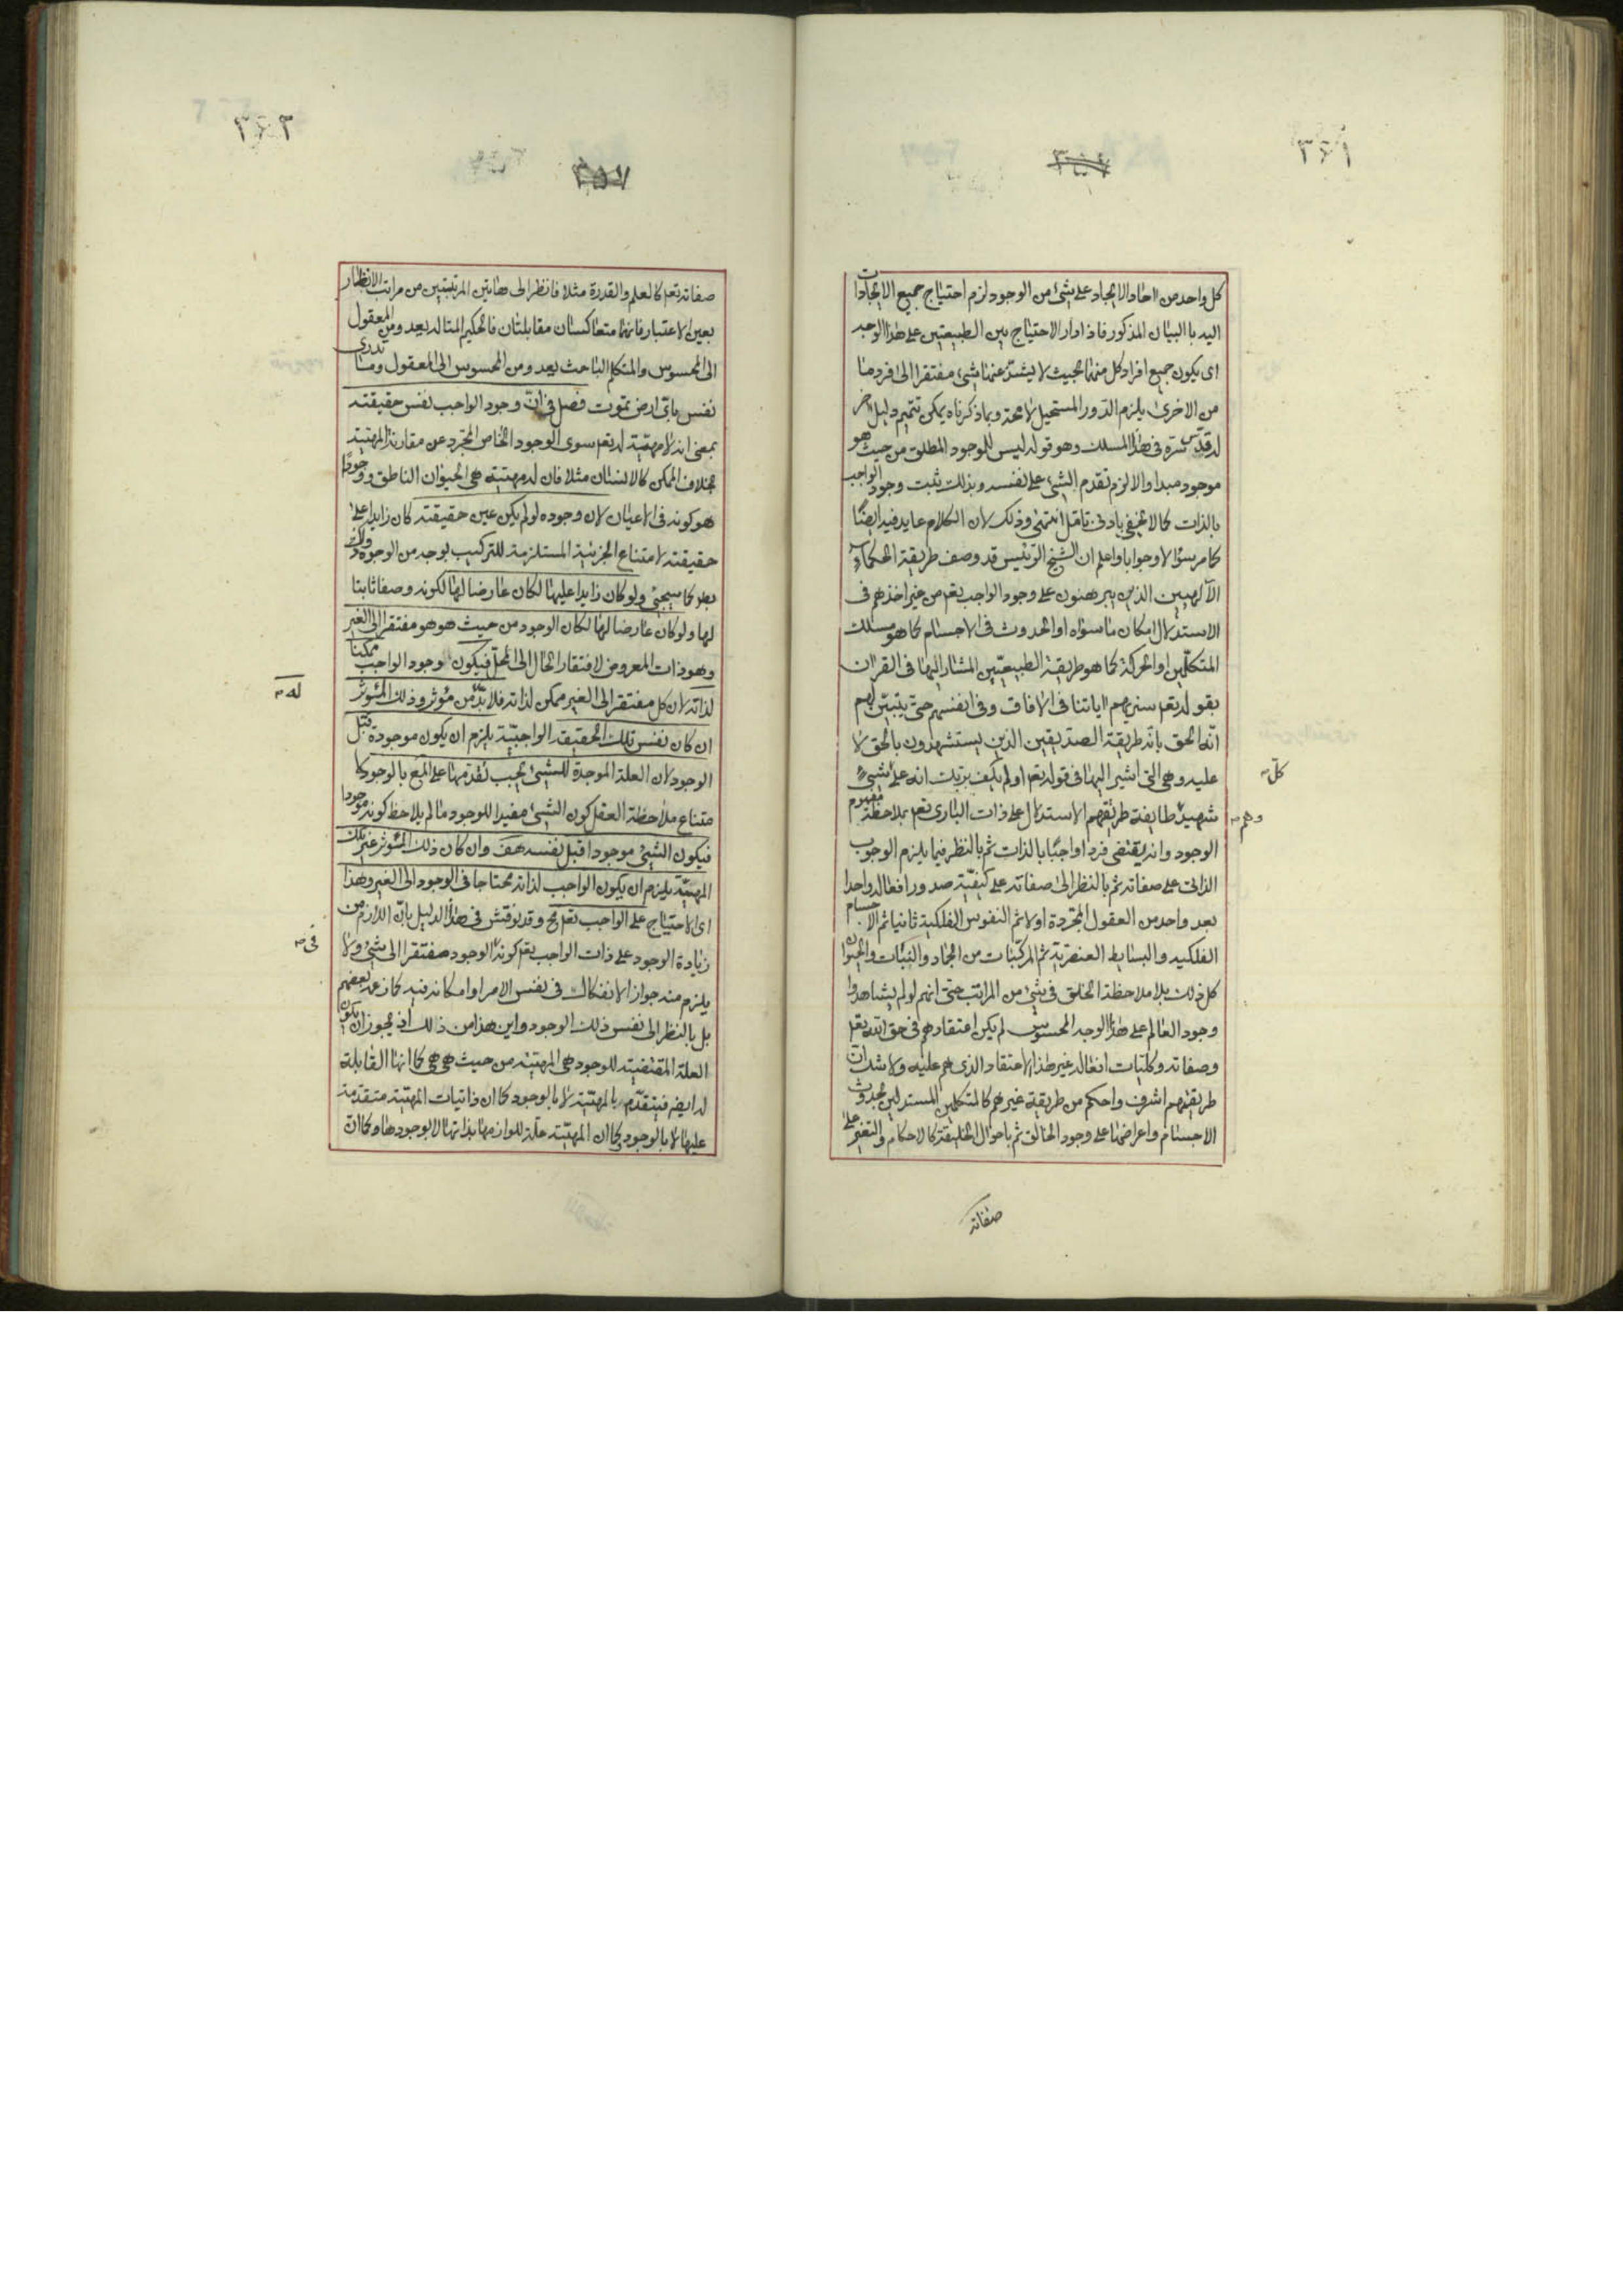 ٣٦١
كل واحد من احاد الايجاد على شئ من الوجود لزم احتياج جميع الايجادات
اليه بالبيان المذكور فاذا دار الاحتياج بين الطبيعتين على هذا الوجه
اى يكون جميع افراد كل منهما بحيث لا يشذ عنها شئ مفتقرا الى فرد ما
من الاخرى يلزم الدور المستحيل لا محة وبما ذكرناه يمكن تتميم دليل اخر
له قدس سره فى هذا المسلك وهو قوله ليس للموجود المطلق من حيث هو
موجود مبدا والا لزم تقدم الشئ على نفسه وبذلك يثبت وجود الواجب
بالذات كما لا يخفى بادنى تامل انتهى وذلك لان الكلام عايد فيه ايضًا
كما مر سؤالا وجوابا واعلم ان الشيخ الرئيس قد وصف طريقة الحكماء
الآلهيين الذين يبرهنون على وجود الواجب تعم من غير اخذهم فى
الاستدلال امكان ما سواه او الحدوث فى الاجسام كما هو مسلك
المتكلمين او الحركة كما هو طريقة الطبيعيين المشار اليها فى القران
بقوله تعم سنريهم اياتنا فى الافاق وفى انفسهم حتى يتبين لهم
انه الحق بانه طريقة الصديقين الذين يستشهدون بالحق لا
عليه وهى التى اشير اليها فى قوله تعم اولم يكف بربك انه على شئ
كل
شهيد طايفة طريقهم الاستدلال على ذات البارى تعم بملاحظة مفهوم
وهم
الوجود وانه يقتضى فردا واجبًا بالذات ثم بالنظر فيما يلزم الوجوب
الذاتى على صفاته ثم بالنظر الى صفاته على كيفية صدور افعاله واحدا
بعد واحد من العقول المجردة اولا ثم النفوس الفلكية ثانيا ثم الاجسام
الفلكيه والبسايط العنصرية ثم المركبات من الجماد والنبات والحيوان
كل ذلك بلا ملاحظة الخلق فى شئ من المراتب حتى انهم لو لم يشاهدوا
وجود العالم على هذا الوجه المحسوس لم يكن اعتقادهم فى حق الله تعم
وصفاته وكليات افعاله غير هذا الاعتقاد الذى هم عليه ولا شك ان
طريقتهم اشرف واحكم من طريقة غيرهم كالمتكلمين المستدلين بحدوث
الاجسام واعراضها على وجود الخالق ثم باحوال الخليقة كالاحكام والتغير على
صفاته
٣٦٢
٣٥٧
صفاته تعم كالعلم والقدرة مثلا فانظر الى هاتين المرتبتين من مراتب الانظار
بعين الاعتبار فانهما متعاكستان متقابلتان فالحكيم المتاله يعد ومن المعقول
الى المحسوس والمتكلم الباحث يعد ومن المحسوس الى المعقول وما تدرى
نفس باى ارض تموت فصل فى ان وجود الواجب نفس حقيقته
بمعنى انه لا مهية له تعم سوى الوجود الخاص المجرد عن مقارنة المهية
بخلاف الممكن كالانسان مثلا فان له مهية هى الحيوان الناطق ووجودًا
هو كونه فى الاعيان لان وجوده لو لم يكن عين حقيقته كان زايدا على
حقيقته لامتناع الجزئية المستلزمة للتركيب بوجه من الوجوه
بط كما سيجئ ولو كان زايدا عليها لكان عارضا لها لكونه وصفا ثابتا
لها ولو كان عارضا لها لكان الوجود من حيث هو هو مفتقرا الى الغير
وهو ذات المعروض لافتقار الحال الى المحل فيكون وجود الواجب ممكنا
لذاته لان كل مفتقر الى الغير ممكن لذاته فلا بد من مؤثر وذلك المؤثر
له
ان كان نفس تلك الحقيقة الواجبية يلزم ان يكون موجودة قبل
الوجود لان العلة الموجدة للشئ يجب تقدمها على المع بالوجود كا
متناع ملاحظة العقل كون الشئ مفيدا للوجود ما لم يلاحظ كونه موجودا
فيكون الشئ موجودا قبل نفسه هف وان كان ذلك المؤثر غير تلك
المهية يلزم ان يكون الواجب لذاته محتاجا فى الوجود الى الغير وهذا
اى الاحتياج على الواجب تعم مح وقد نوقش فى هذا الدليل بان اللازم من
زيادة الوجود على ذات الواجب تعم كونه الوجود مفتقرا الى شئ ولا
فى
يلزم منه جواز الانفكاك فى نفس الامر او امكانه فيه كما زعمه بعضهم
بل بالنظر الى نفس ذلك الوجود واين هذا من ذالك اذ يجوز ان يكون
العلة المقتضية للوجود هى المهية من حيث هى هى كما انها القابلة
له ايضا فيتقدم بالمهية لا بالوجود كما ان ذاتيات المهية متقدمة
عليها لا بالوجود وكما ان المهية علة للوازمها بذاتها لا بوجودها وكما ان